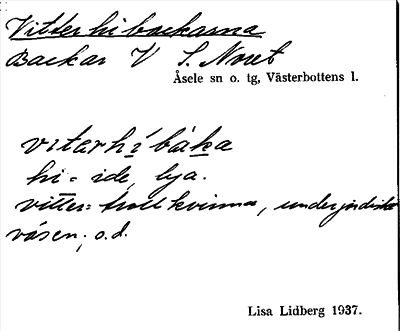 Vitterhibackarna
Backar V S. Noret
Åsele sn o. tg, Västerbottens l.
vɪtərhí̱bàḵa
hi = ide, lya.
vitter = trollkvinna, underjordiskt
väsen; o.d.
Lisa Lidberg 1937.